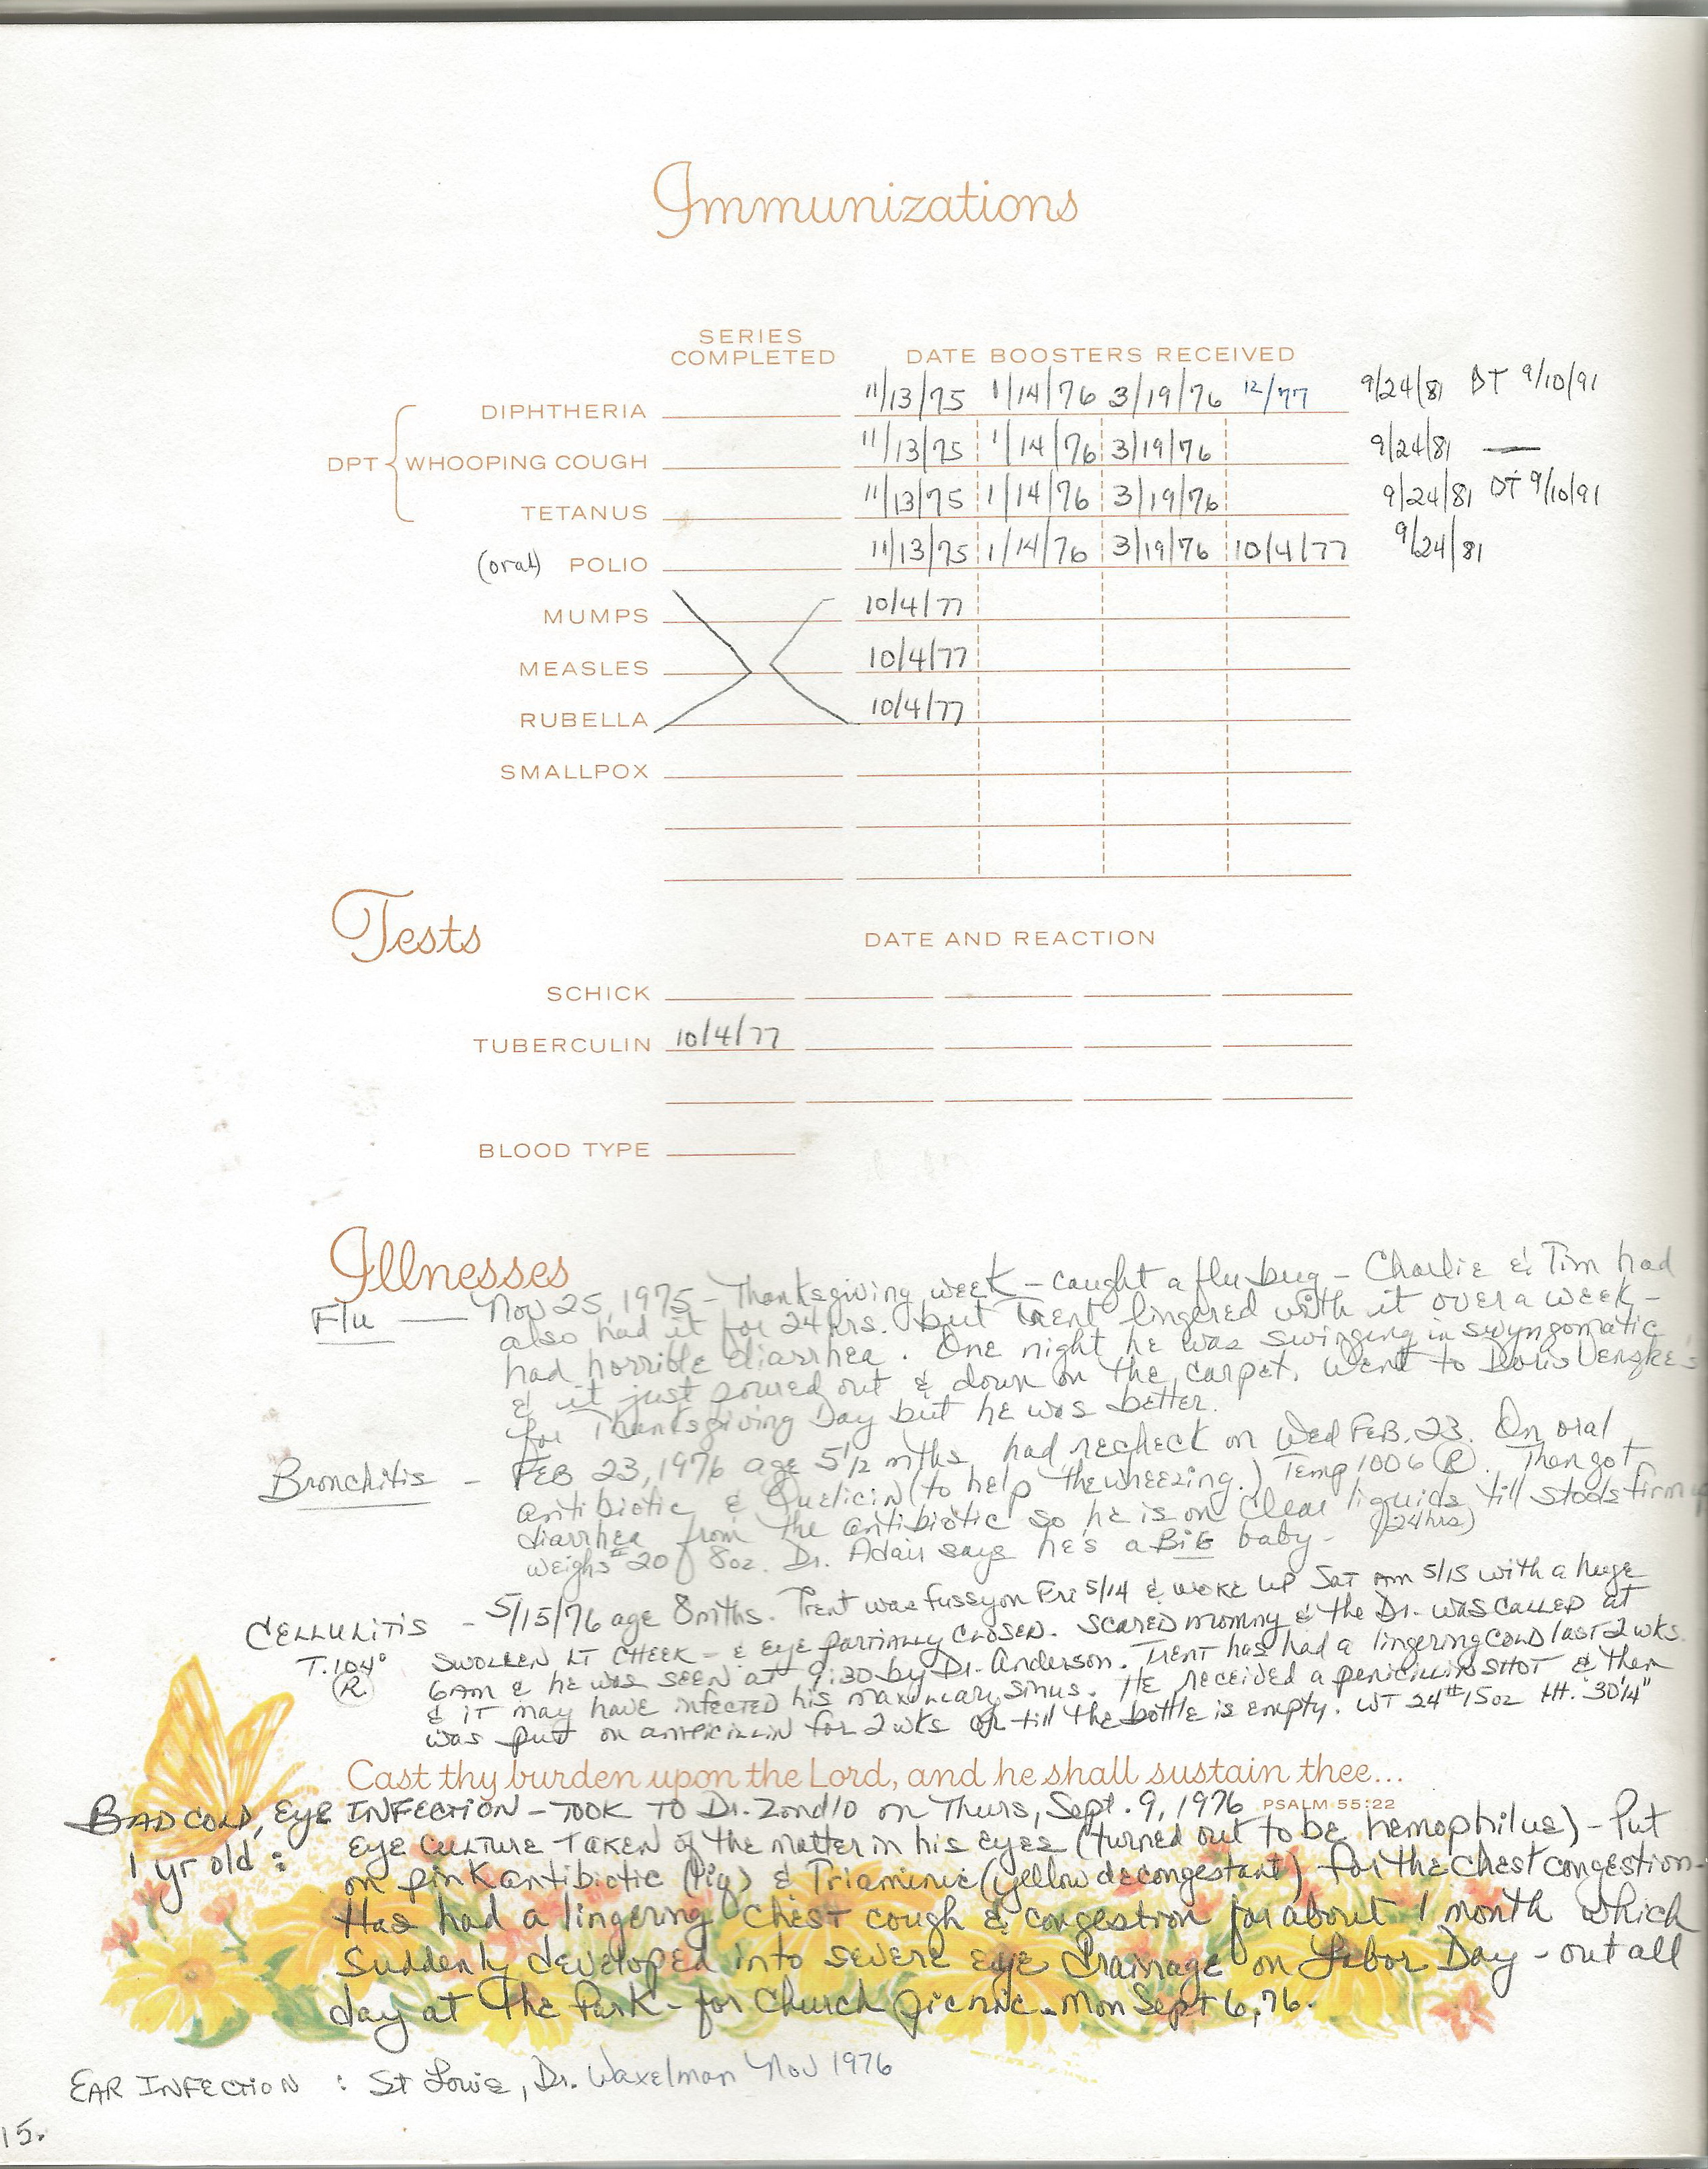 Immunizations
SERIES
COMPLETED
DATE BOOSTERS RECEIVED
DIPHTHERIA 11/13/75 1/14/76 3/19/76 12/77 9/24/81 DT 9/10/91
DPT { WHOOPING COUGH 11/13/75 1/14/76 3/19/76 9/24/81 —
TETANUS 11/13/75 1/14/76 3/19/76 9/24/81 DT 9/10/91
(oral) POLIO 11/13/75 1/14/76 3/19/76 10/4/77 9/24/81
MUMPS 10/4/77
MEASLES 10/4/77
RUBELLA 10/4/77
SMALLPOX
Tests
DATE AND REACTION
SCHICK
TUBERCULIN 10/4/77
BLOOD TYPE
Illnesses
Flu — Nov 25, 1975 - Thanksgiving week - caught a flu bug - Charlie & Tim had
also had it for 24 hrs. but Trent lingered with it over a week -
had horrible diarrhea. One night he was swinging in swyngomatic
& it just poured out & down on the carpet. Went to Doris Venske's
for Thanksgiving Day but he was better.
Bronchitis - FEB 23, 1976 age 5 1/2 mths, had recheck on Wed FEB. 23. On oral
antibiotic & (to help the wheezing.) Temp 1006 (R). Then got
diarrhea from the antibiotic so he is on clear liquids till stools firm up
weighs # 20 8oz. Dr. Adair says he's a BiG baby - (24hrs)
CELLULITIS - 5/15/76 age 8 mths. Trent was fussy on Fri 5/14 & woke up Sat Am 5/15 with a huge
T. 104° SWOLLEN LT CHEEK - & EYE PARTIALLY CLOSED. SCARED MOMMY & the Dr. was CALLED at
(R) 6AM & he was SEEN at 9:30 by Dr. Anderson. TRENT has had a lingering COLD last 2 wks.
& IT may have infected his maxillary sinus. He received a penicillin SHOT & then
was put on ampicillin for 2 wks or till the bottle is empty. WT 24# 15oz Ht. 30 1/4"
Cast thy burden upon the Lord, and he shall sustain thee...
PSALM 55:22
BAD COLD, EYE INFECTION - TOOK TO Dr. Zond10 on Thurs, Sept. 9, 1976
1 yr old: EYE CULTURE TAKEN of the matter in his eyes (turned out to be hemophilus) - Put
on pink antibiotic & Triaminic (yellow decongestant) for the chest congestion -
Has had a lingering chest cough & congestion for about 1 month which
suddenly developed into severe eye drainage on Labor Day - out all
day at the Park - for Church picnic - Mon Sept 6, 76.
EAR INFECTION : St Louis, Dr. Waxelman Nov 1976
15.